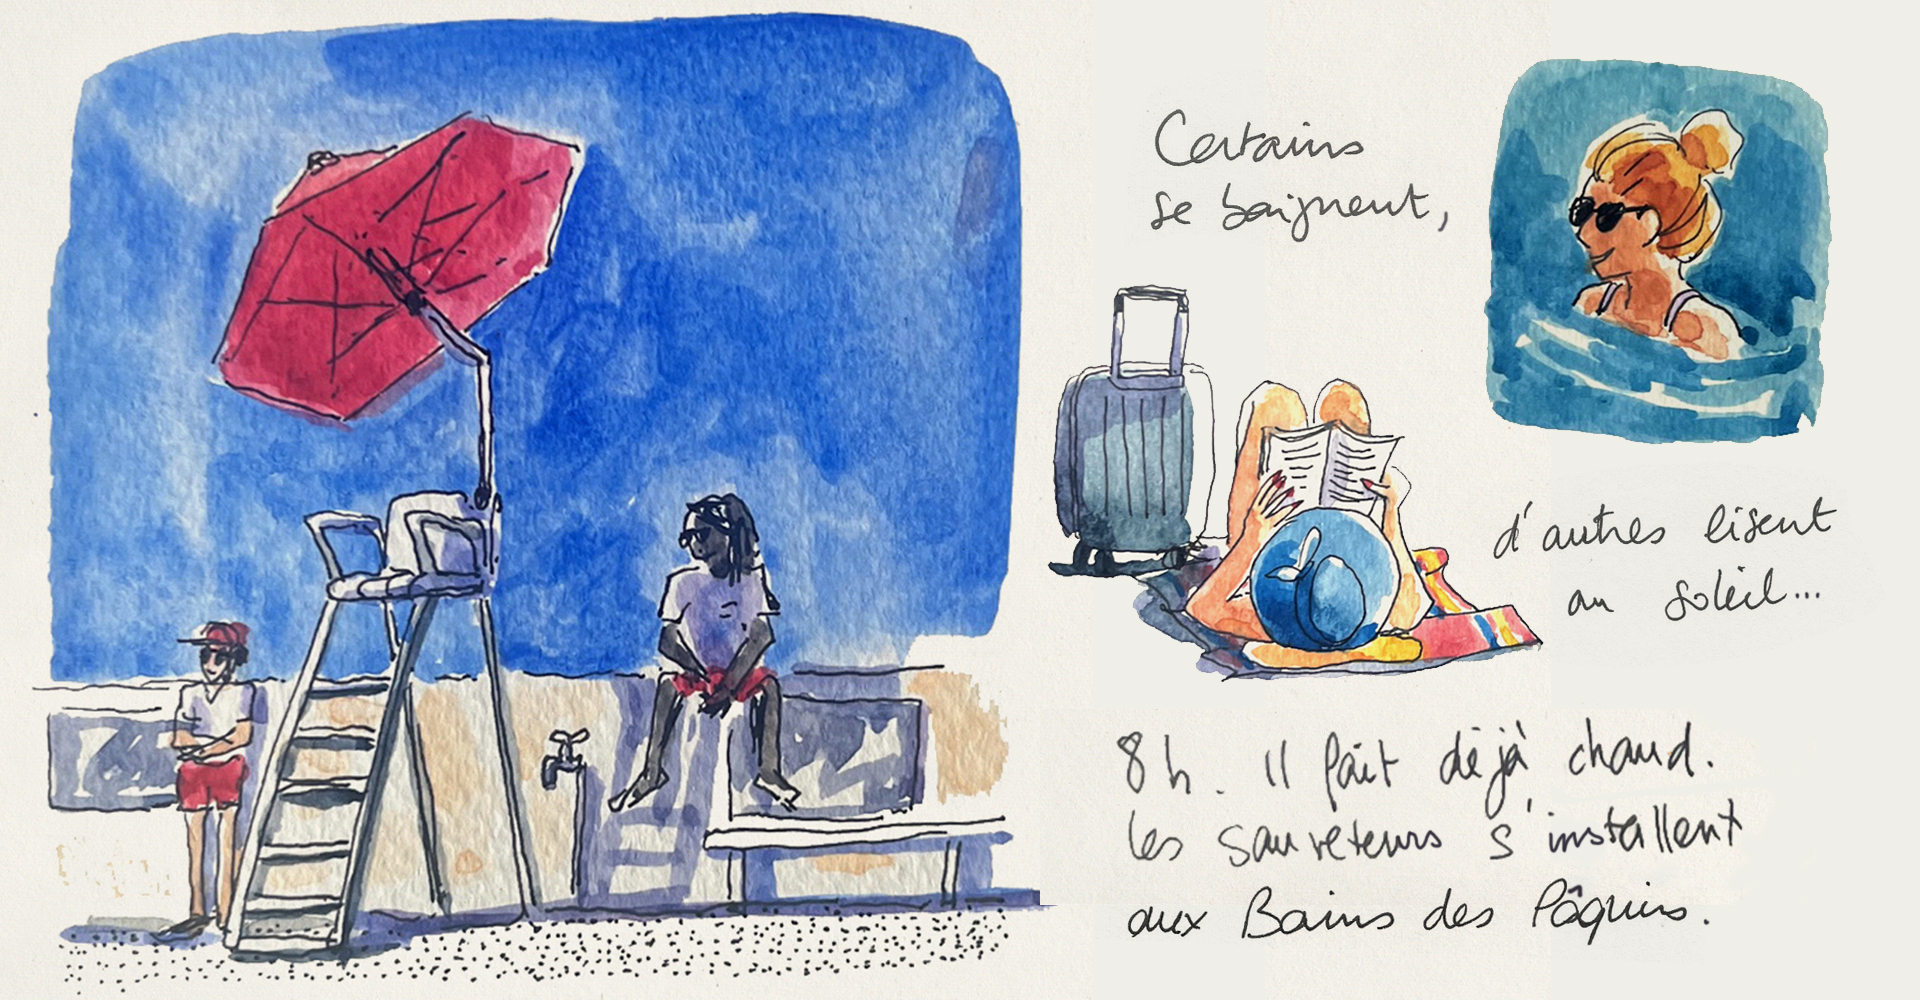 Certains
se baignent,
d'autres lisent
au soleil...
8h. Il fait déjà chaud.
les sauveteurs s'installent
aux Bains des Pâquis.